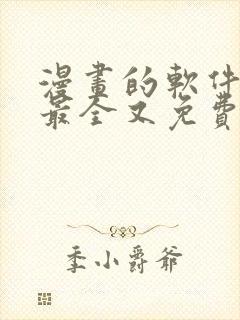 漫畫的軟件
最全又免費
季小爵爺